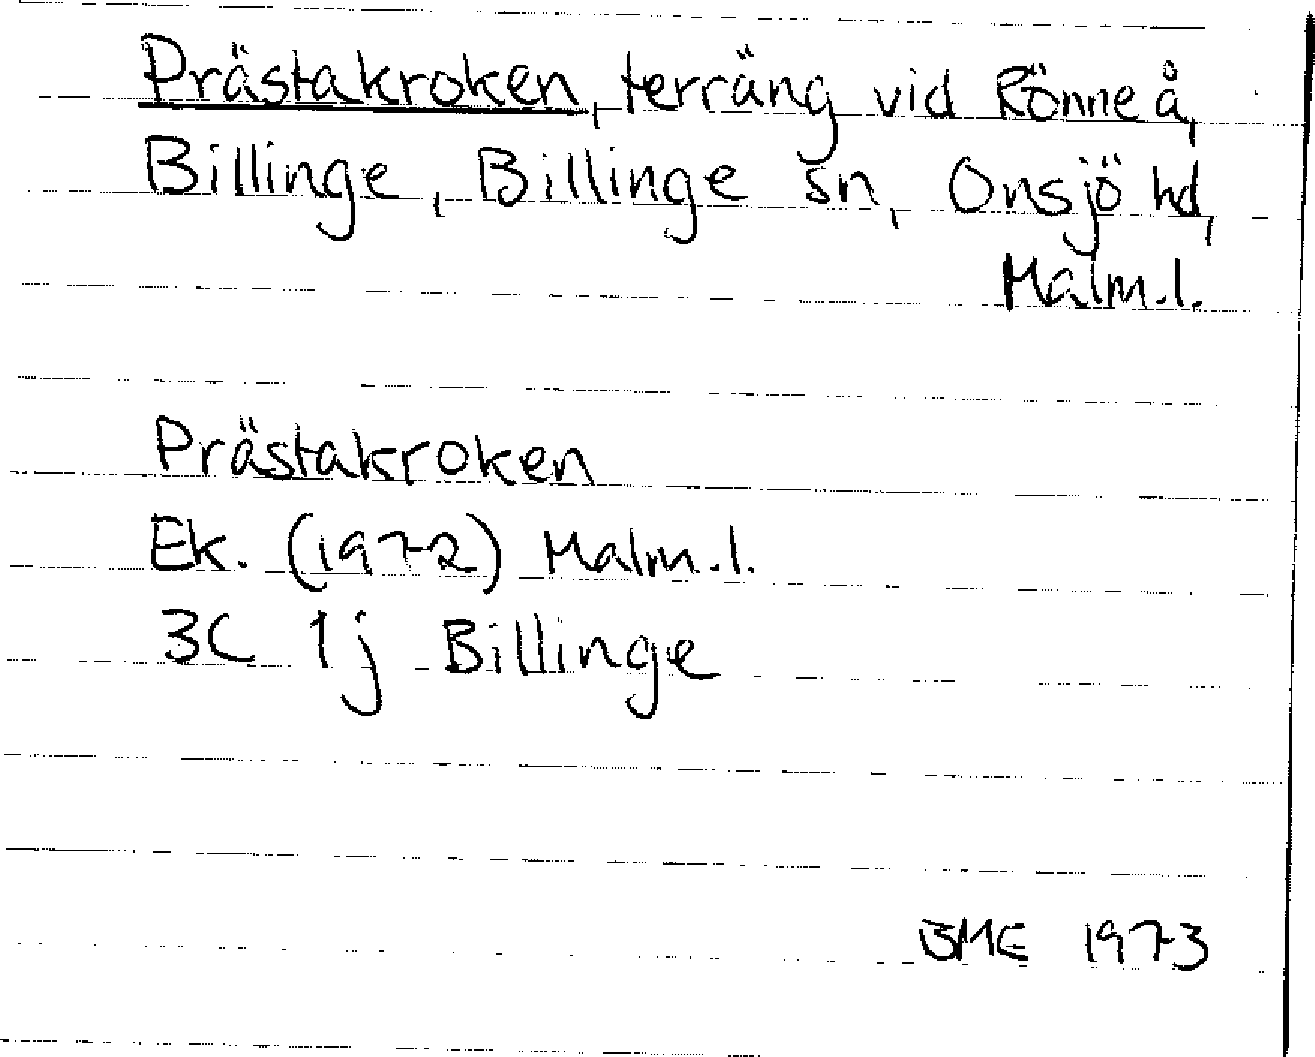 Prästakroken, terräng vid Rönne å,
Billinge, Billinge sn, Onsjö hd,
Malm.l.
Prästakroken
Ek. (1972) Malm.l.
3C 1j Billinge
BME 1973